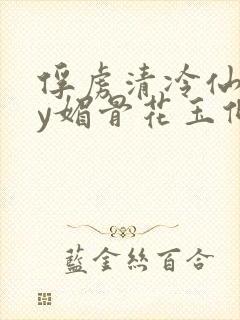 俘虏清冷仙
y媚骨花玉
藍金丝百合